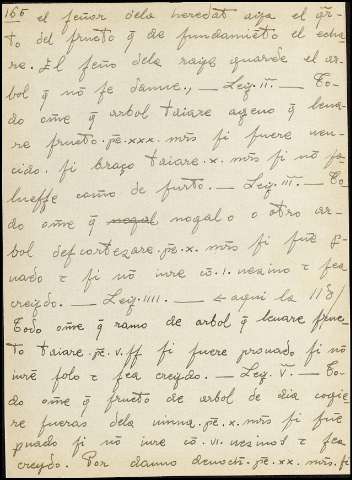 166 el señor dela heredat aya el q̃r-
to del fructo q̃ de fundamiẽto el echa-
re. El seño dela rayz guarde el ar-
bol q̃ nõ se danne., — Ley. II. — To-
do om̃e q̃ arbol taiare ageno q̃ leua-
re fructo. pẽ. xxx. mr̃s si fuere uen-
cido. si braço taiare. x. mr̃s si nõ sa-
luesse como de furto. — Ley. III. — To-
do om̃e q̃ nogal nogal o otro ar-
bol descortezare. pẽ. x. mr̃s si fuẽ p-
uado τ si nõ iure cõ. I. uezino τ sea
creydo. — Ley. IIII. — ← aqui la 118/
Todo om̃e q̃ ramo de arbol q̃ leuare fruc-
to taiare. pẽ. v. ss si fuere prouado si nõ
iurẽ solo τ sea creydo. — Ley. V. — To-
do om̃e q̃ fructo de arbol de dia cogie-
re fueras dela uinna. pẽ. x. mr̃s si fuẽ
puado si nõ iure cõ. VI. uezinos τ sea
creydo. Por danno de pẽ. xx. mr̃s. si